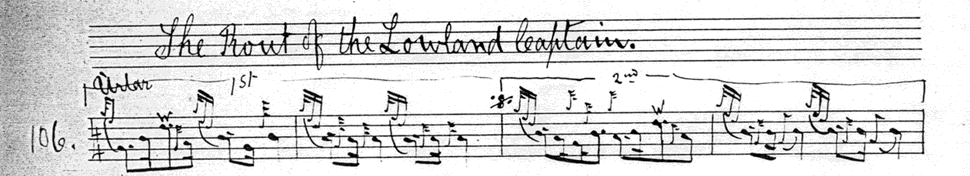 The Rout of the Lowland Captain.
Ùrlar 1st 2nd
106.